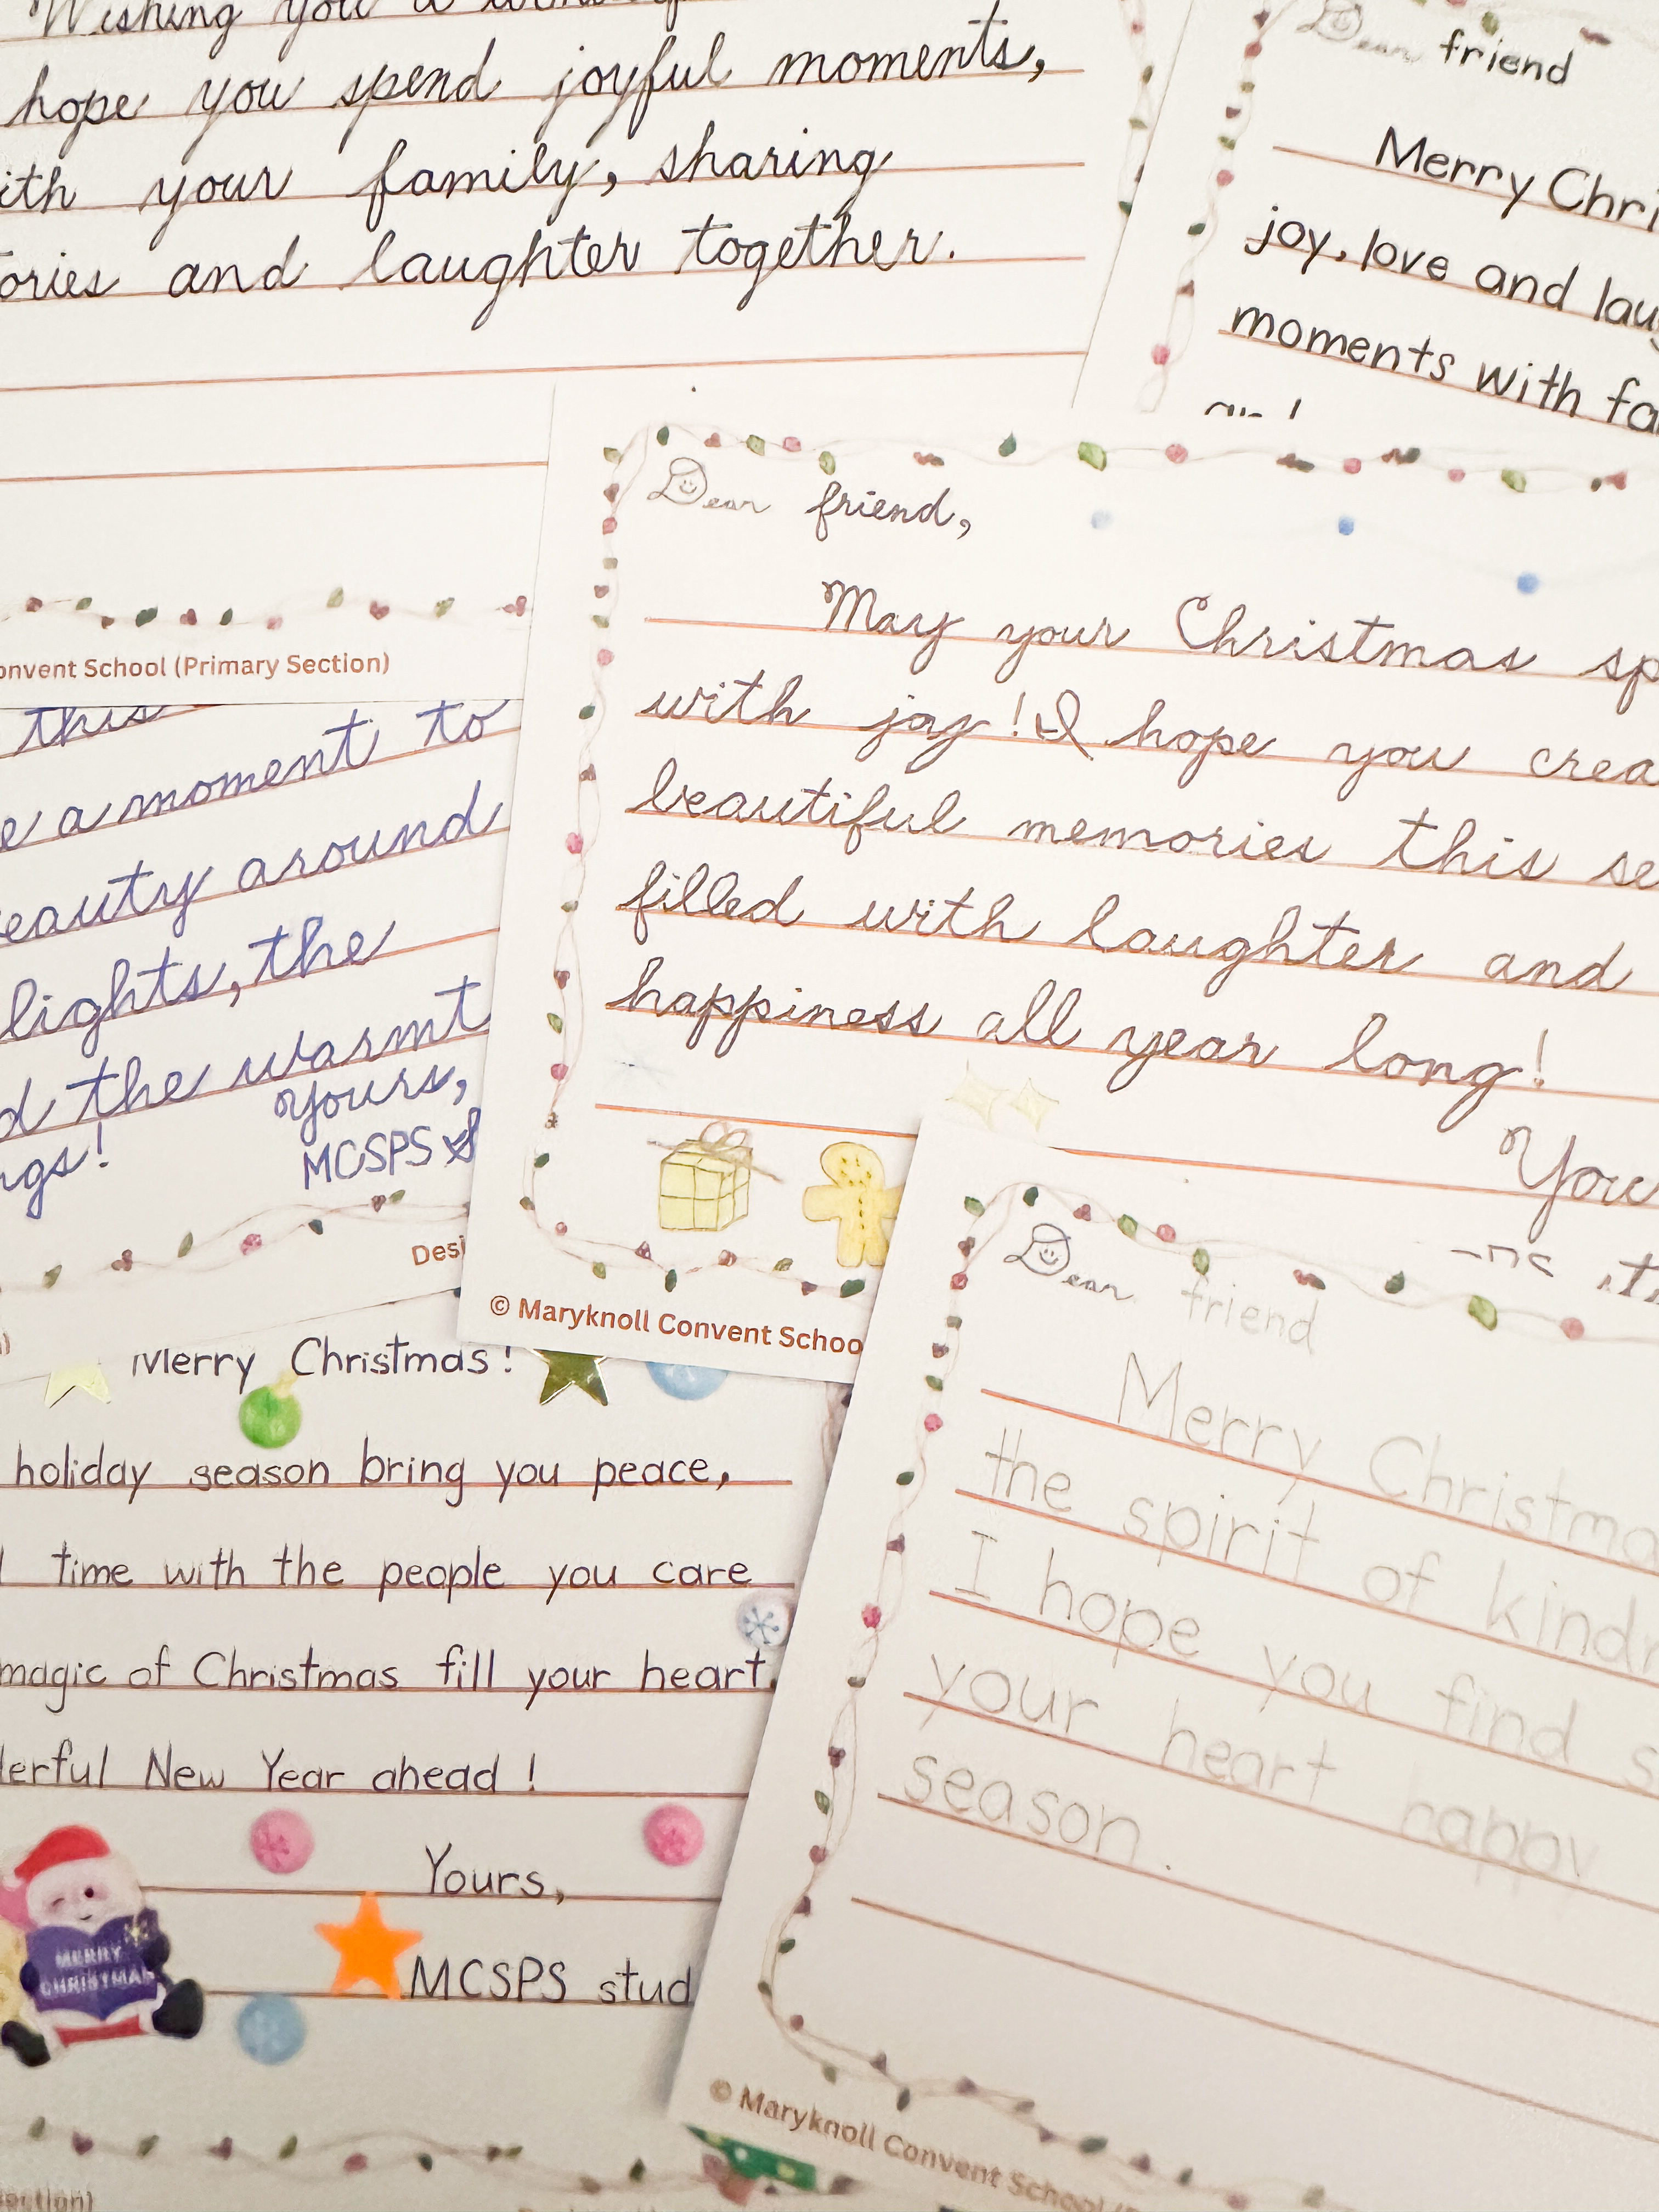 Wishing you a
hope you spend joyful moments,
ith your family, sharing
ories and laughter together.
onvent School (Primary Section)
Dear friend
Merry Chri
joy, love and lau
moments with fa
Dear friend,
May your Christmas sp
with joy! I hope you crea
beautiful memories this se
filled with laughter and
happiness all year long!
You
© Maryknoll Convent Schoo
this
e a moment to
eauty around
lights, the
d the warmt
ngs!
yours,
MCSPS S
Desi
Merry Christmas!
holiday season bring you peace,
time with the people you care
magic of Christmas fill your heart.
derful New Year ahead!
Yours,
MCSPS stud
MERRY
CHRISTMAS
ection)
Dear friend
Merry Christma
the spirit of kindn
I hope you find s
your heart happy
season.
© Maryknoll Convent School (P